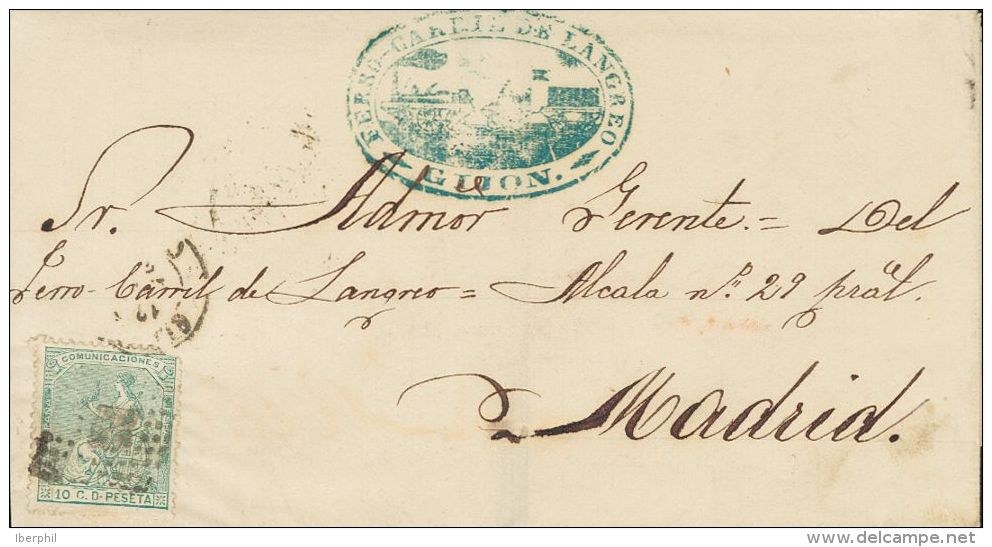 FERRO-CARRIL DE LANGREO
GIJON.
Sr. Admor Gerente.= Del
Ferro-Carril de Langreo = Alcala nº 29 pral.
Madrid.
COMUNICACIONES
10 C. D. PESETA
Iberphil
delcampe.net